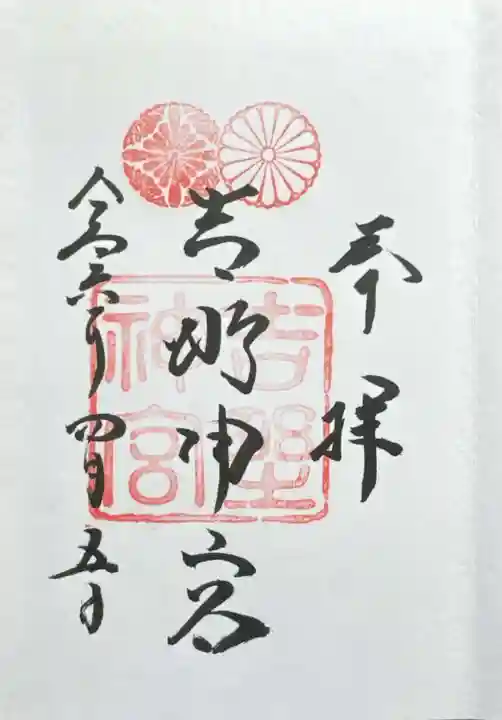 奉拝
吉野神宮
吉野神宮
令和六年四月五日